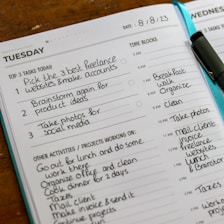 DATE: 8/8/23
WEDNES
TUESDAY
TOP 3 TASKS TODAY
TIME BLOCKS
1 Pick the 3 best freelance
websites & make accounts
2 Brainstorm again for
product ideas
3 Take photos for
social media
Breakfast
walk
Organize
clean
Taxes
mail client
invoice
freelance
websites
lunch
& Brainstor
Taxes
OTHER ACTIVITIES / PROJECTS WORKING ON:
Go out for lunch and do some
work there
Organize office and clean
Cook dinner for 2 days
Taxes
Mail client
Make invoice & send it
Continue projects